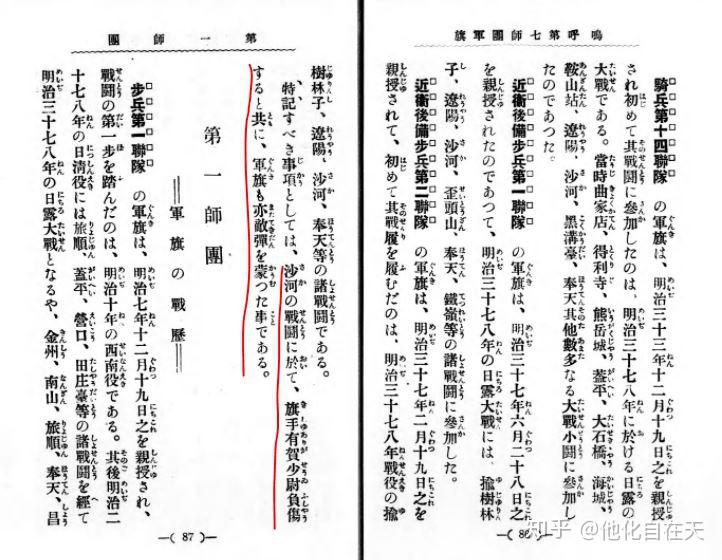 嗚呼第七師團軍旗
騎兵第十四聯隊 の軍旗は、明治三十三年十二月十九日之を親授
され初めて其戰鬪に參加したのは、明治三十七八年に於ける日露の
大戰である。當時曲家店、得利寺、熊岳城、蓋平、大石橋、海城、
鞍山站、遼陽、沙河、黑溝臺、奉天其他數多なる大戰小鬪に參加し
たのであつた。
近衞後備步兵第一聯隊 の軍旗は、明治三十七年六月二十八日之
を親授されたのであつて、明治三十七八年の日露大戰には、揄樹林
子、遼陽、沙河、歪頭山、奉天、鐵嶺等の諸戰鬪に參加した。
近衞後備步兵第二聯隊 の軍旗は、明治三十七年二月十九日之を
親授されて、初めて其戰履を履むだのは、明治三十七八年戰役の揄
—( 86
第一師團
樹林子、遼陽、沙河、奉天等の諸戰鬪である。
特記すべき事項としては、沙河の戰鬪に於て、旗手有賀少尉負傷
すると共に、軍旗も亦敵彈を蒙つた事である。
第一師團
——軍旗の戰歷——
步兵第一聯隊 の軍旗は、明治七年十二月十九日之を親授され、
戰鬪の第一步を踏んだのは、明治十年の西南役である。其後明治二
十七八年の日淸役には旅順、蓋平、營口、田庄臺等の諸戰鬪を經て
明治三十七八年の日露大戰となるや、金州、南山、旅順、奉天、昌
—( 87 )—
知乎 @他化自在天